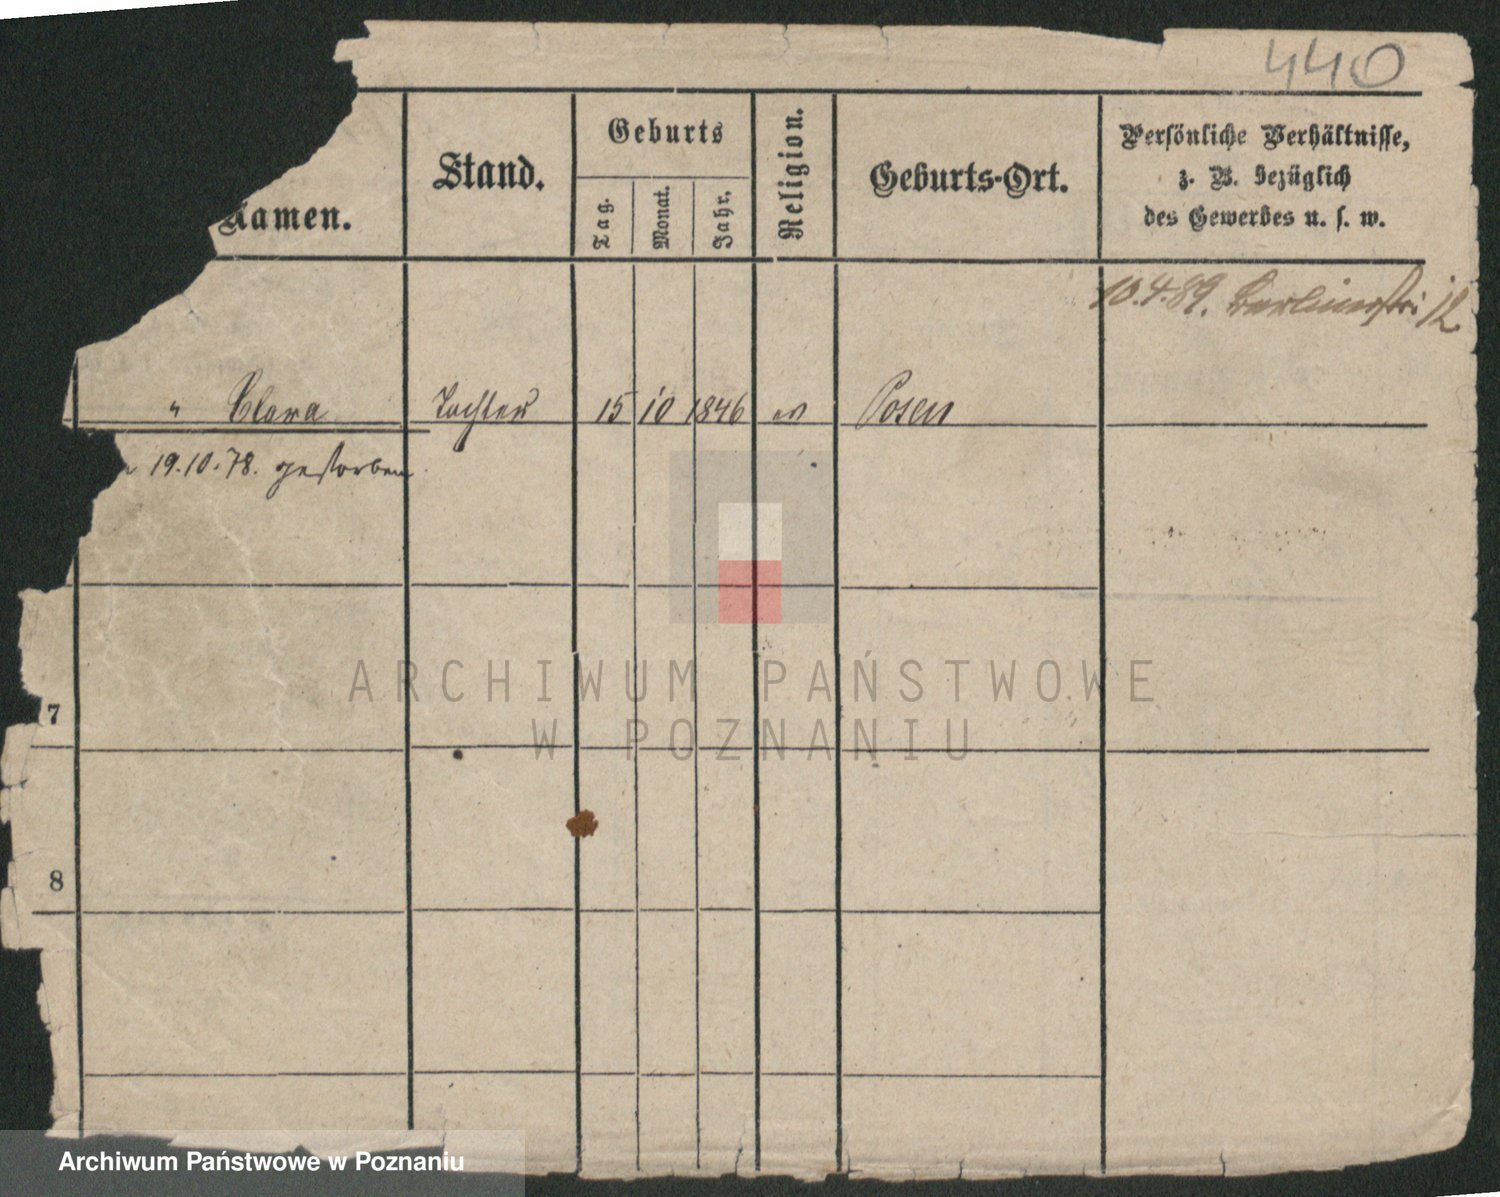 440
Namen.
Stand.
Geburts
Tag.
Monat.
Jahr.
Religion.
Geburts-Ort.
Persönliche Verhältnisse,
z. B. bezüglich
des Gewerbes u. s. w.
10.4.89. Berlinerstr: 12
" Clara Tochter 15 10 1846 ev Posen
19.10.78. gestorben.
7
8
ARCHIWUM PAŃSTWOWE
W POZNANIU
Archiwum Państwowe w Poznaniu